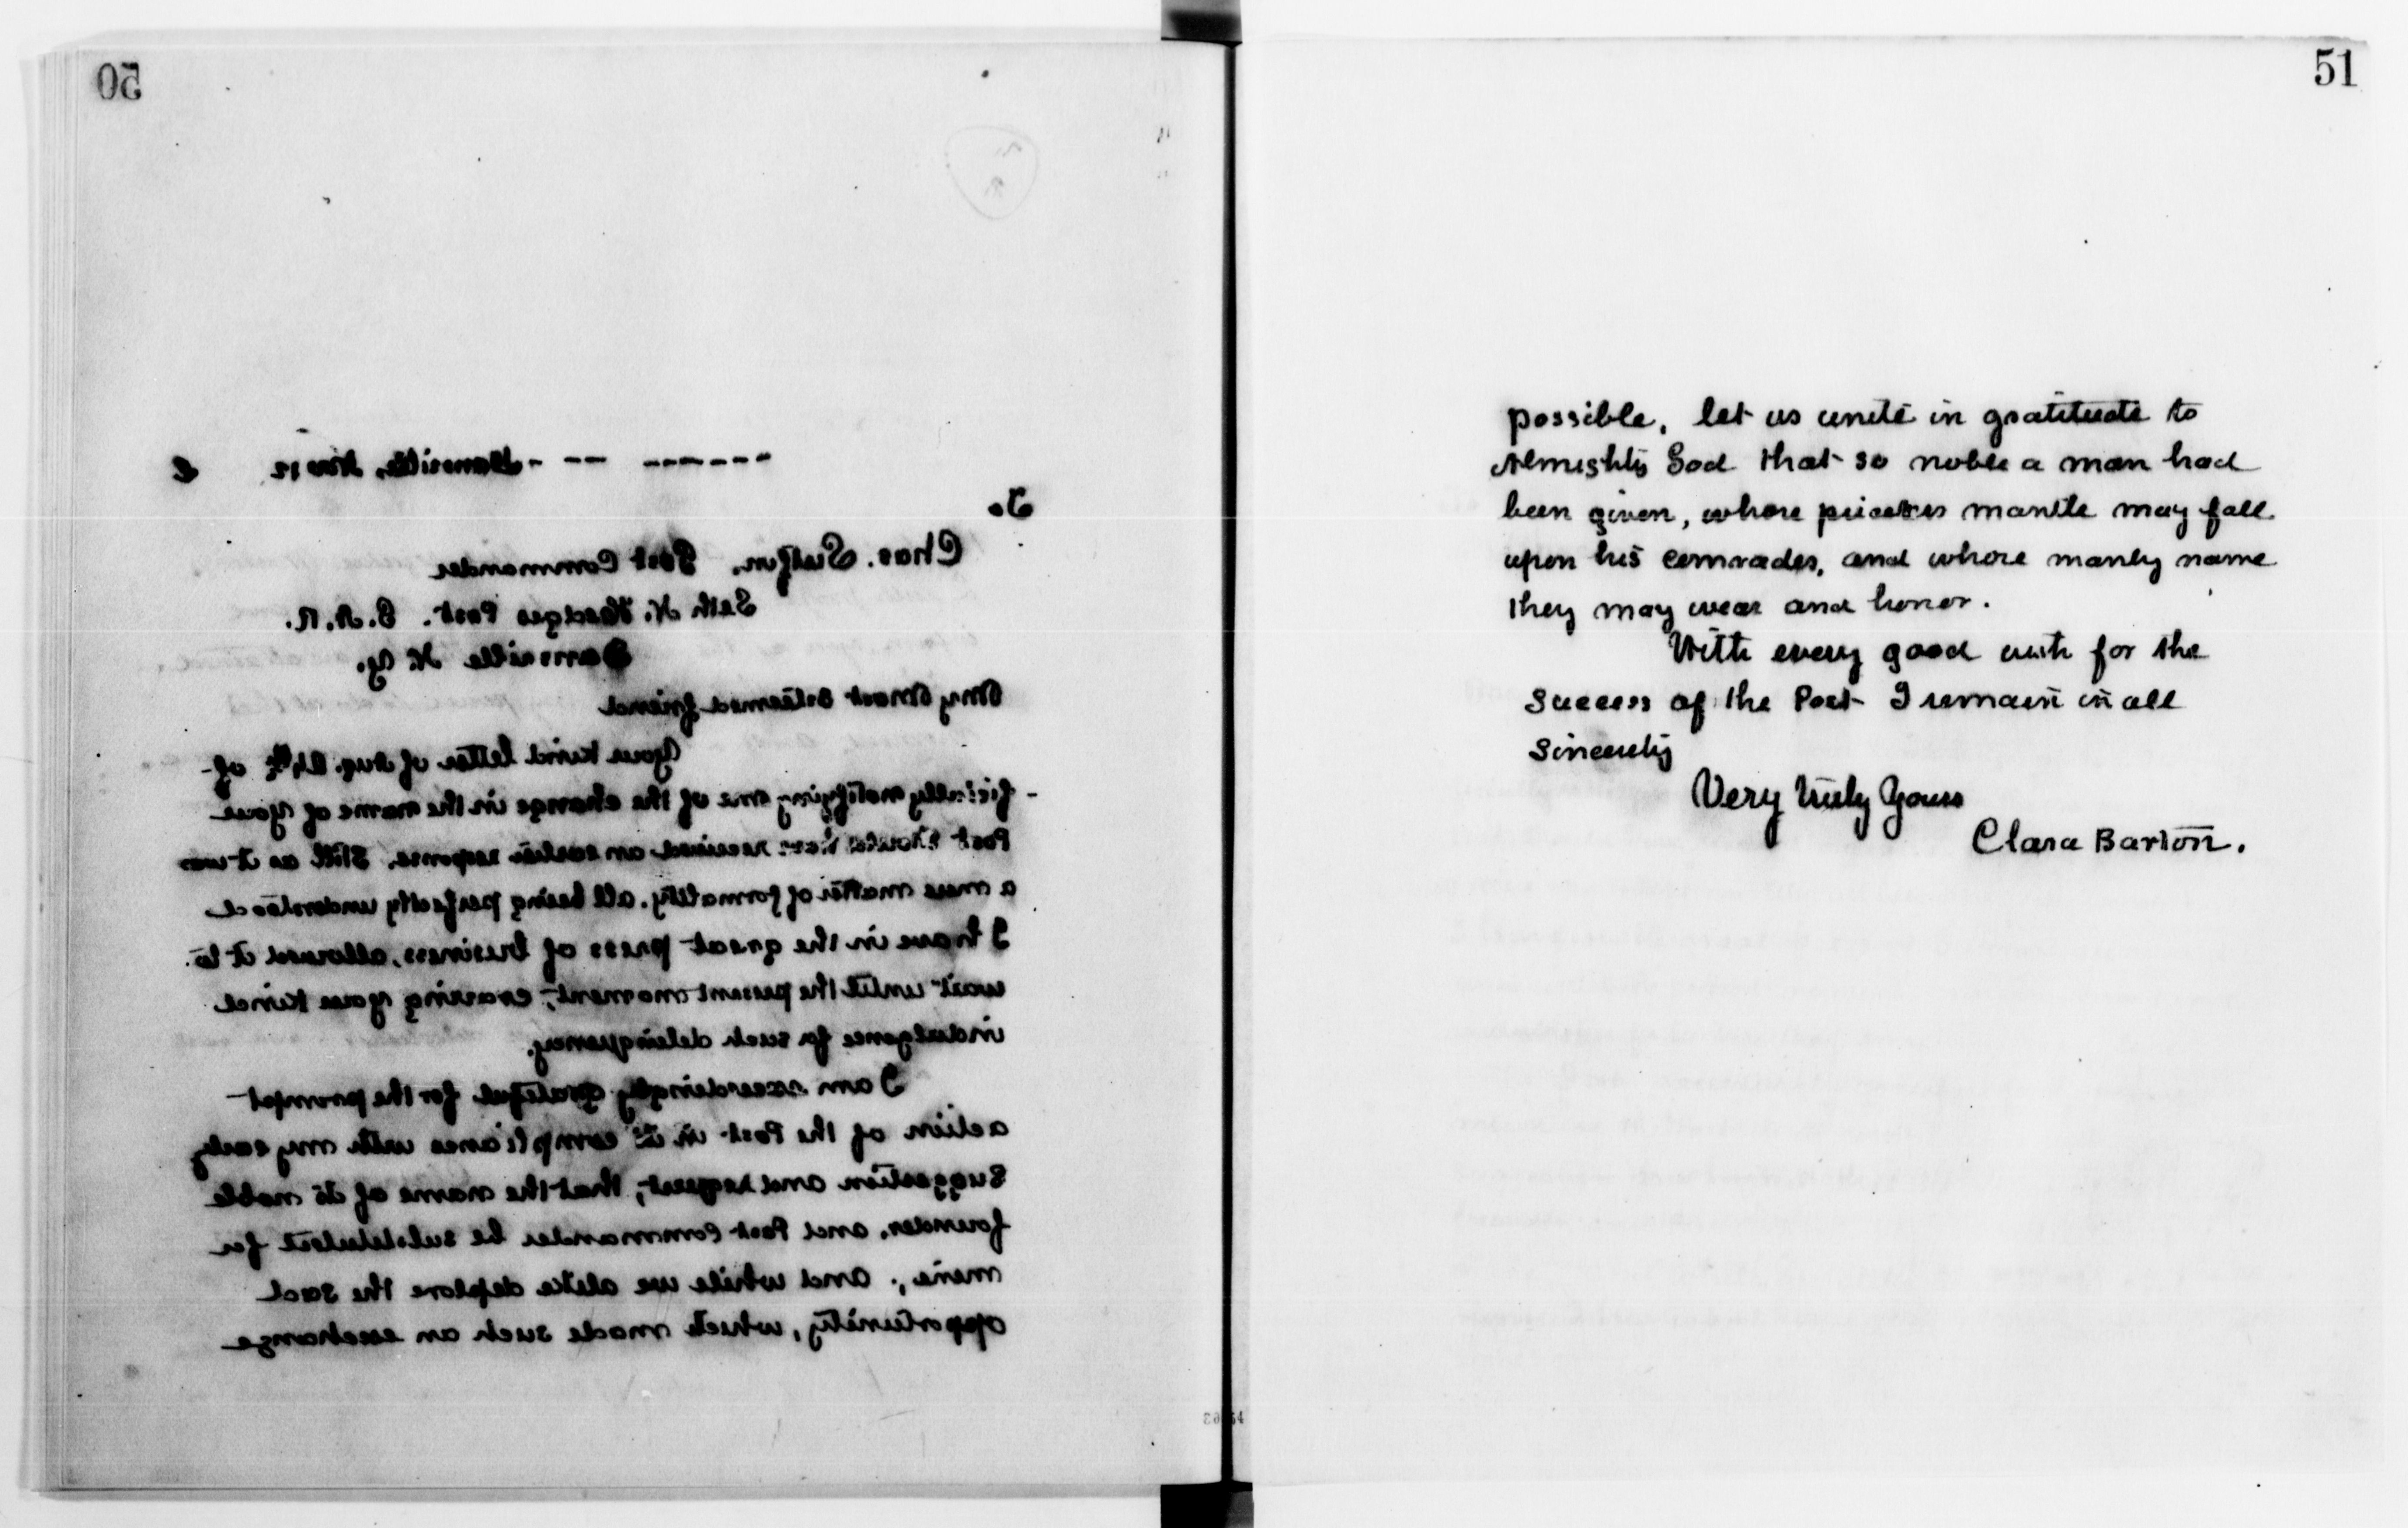 50
Dansville, Nov 12
To
Chas. Sutfin, Post Commander
Seth N. Hedges Post. G.A.R.
Dansville N.Y.
My most esteemed friend
Your kind letter of Aug. 24th of-
-ficially notifying me of the change in the name of your
Post should have received an earlier response. Still as it was
a mere matter of formality, all being perfectly understood
I have in the great press of business, allowed it to
wait until the present moment, craving your kind
indulgence for such delinquency.
I am exceedingly grateful for the prompt
action of the Post in its compliance with my early
suggestion and request, that the name of its noble
founder, and Post Commander be substituted for
mine; and while we alike deplore the sad
opportunity, which made such an exchange
51
possible, let us unite in gratitude to
Almighty God that so noble a man had
been given, whose priceless mantle may fall
upon his comrades, and whose manly name
they may wear and honor.
With every good wish for the
success of the Post I remain in all
Sincerity
Very truly yours
Clara Barton.